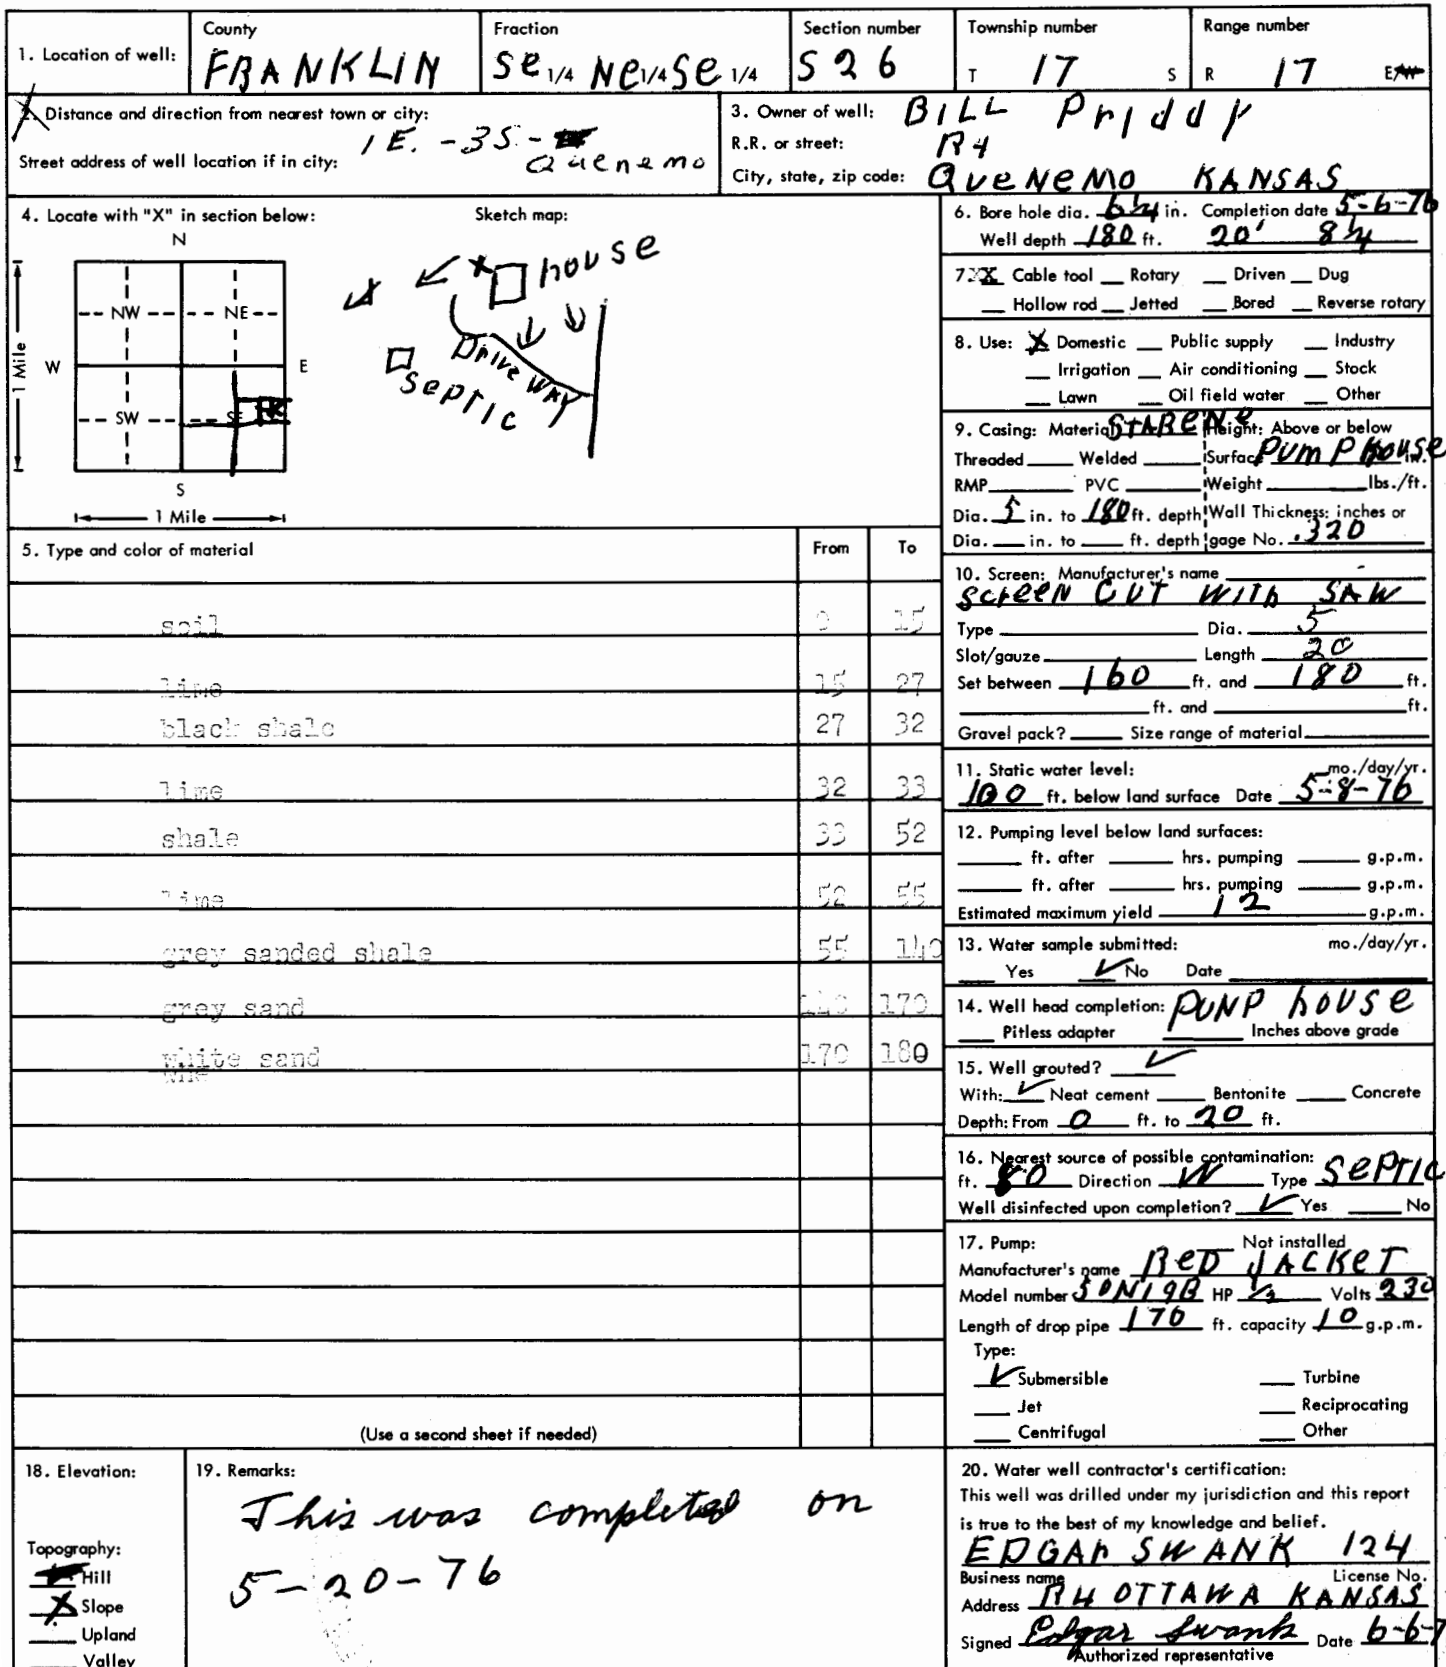 1. Location of well:
County
FRANKLIN
Fraction
SE 1/4 NE 1/4 SE 1/4
Section number
S 26
Township number
T 17 S
Range number
R 17 E/W
2. Distance and direction from nearest town or city:
1 E. - 3 S - Quenemo
Street address of well location if in city:
3. Owner of well: BILL Priddy
R.R. or street: R4
City, state, zip code: QUENEMO KANSAS
4. Locate with "X" in section below:
N
NW NE
W E
SW SE
S
1 Mile
1 Mile
Sketch map:
X house
Drive WAY
SEPTIC
5. Type and color of material From To
soil 0 15
lime 15 27
black shale 27 32
lime 32 33
shale 33 52
lime 52 55
grey sanded shale 55 140
grey sand 140 170
white sand 170 180
(Use a second sheet if needed)
6. Bore hole dia. 6 1/4 in. Completion date 5-6-76
Well depth 180 ft. 20' 8 1/4
7. X Cable tool Rotary Driven Dug
Hollow rod Jetted Bored Reverse rotary
8. Use: X Domestic Public supply Industry
Irrigation Air conditioning Stock
Lawn Oil field water Other
9. Casing: Material STARENE Height: Above or below
Threaded Welded Surface PUMP HOUSE in.
RMP PVC Weight lbs./ft.
Dia. 5 in. to 180 ft. depth Wall Thickness: inches or
Dia. in. to ft. depth gage No. .320
10. Screen: Manufacturer's name
SCREEN CUT WITH SAW
Type Dia. 5
Slot/gauze Length 20
Set between 160 ft. and 180 ft.
ft. and ft.
Gravel pack? Size range of material
11. Static water level: mo./day/yr.
100 ft. below land surface Date 5-8-76
12. Pumping level below land surfaces:
ft. after hrs. pumping g.p.m.
ft. after hrs. pumping g.p.m.
Estimated maximum yield 12 g.p.m.
13. Water sample submitted: mo./day/yr.
Yes ✓ No Date
14. Well head completion: PUNP house
Pitless adapter Inches above grade
15. Well grouted? ✓
With: ✓ Neat cement Bentonite Concrete
Depth: From 0 ft. to 20 ft.
16. Nearest source of possible contamination:
ft. 80 Direction W Type SEPTIC
Well disinfected upon completion? ✓ Yes No
17. Pump: Not installed
Manufacturer's name RED JACKET
Model number 50N19B HP 1/2 Volts 230
Length of drop pipe 170 ft. capacity 10 g.p.m.
Type:
✓ Submersible Turbine
Jet Reciprocating
Centrifugal Other
18. Elevation:
Topography:
Hill
X Slope
Upland
Valley
19. Remarks:
This was completed on
5-20-76
20. Water well contractor's certification:
This well was drilled under my jurisdiction and this report
is true to the best of my knowledge and belief.
EDGAR SWANK 124
Business name License No.
Address R4 OTTAWA KANSAS
Signed Edgar Swank Date 6-6-7
Authorized representative